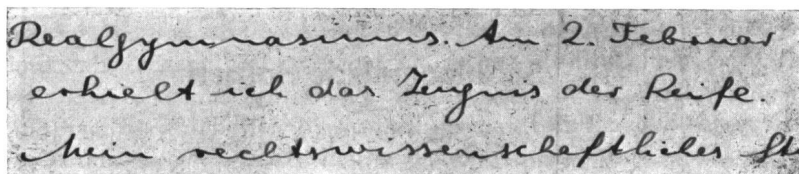 Realgymnasiums. Am 2. Februar
erhielt ich das Zeugnis der Reife.
Mein rechtswissenschaftliches St